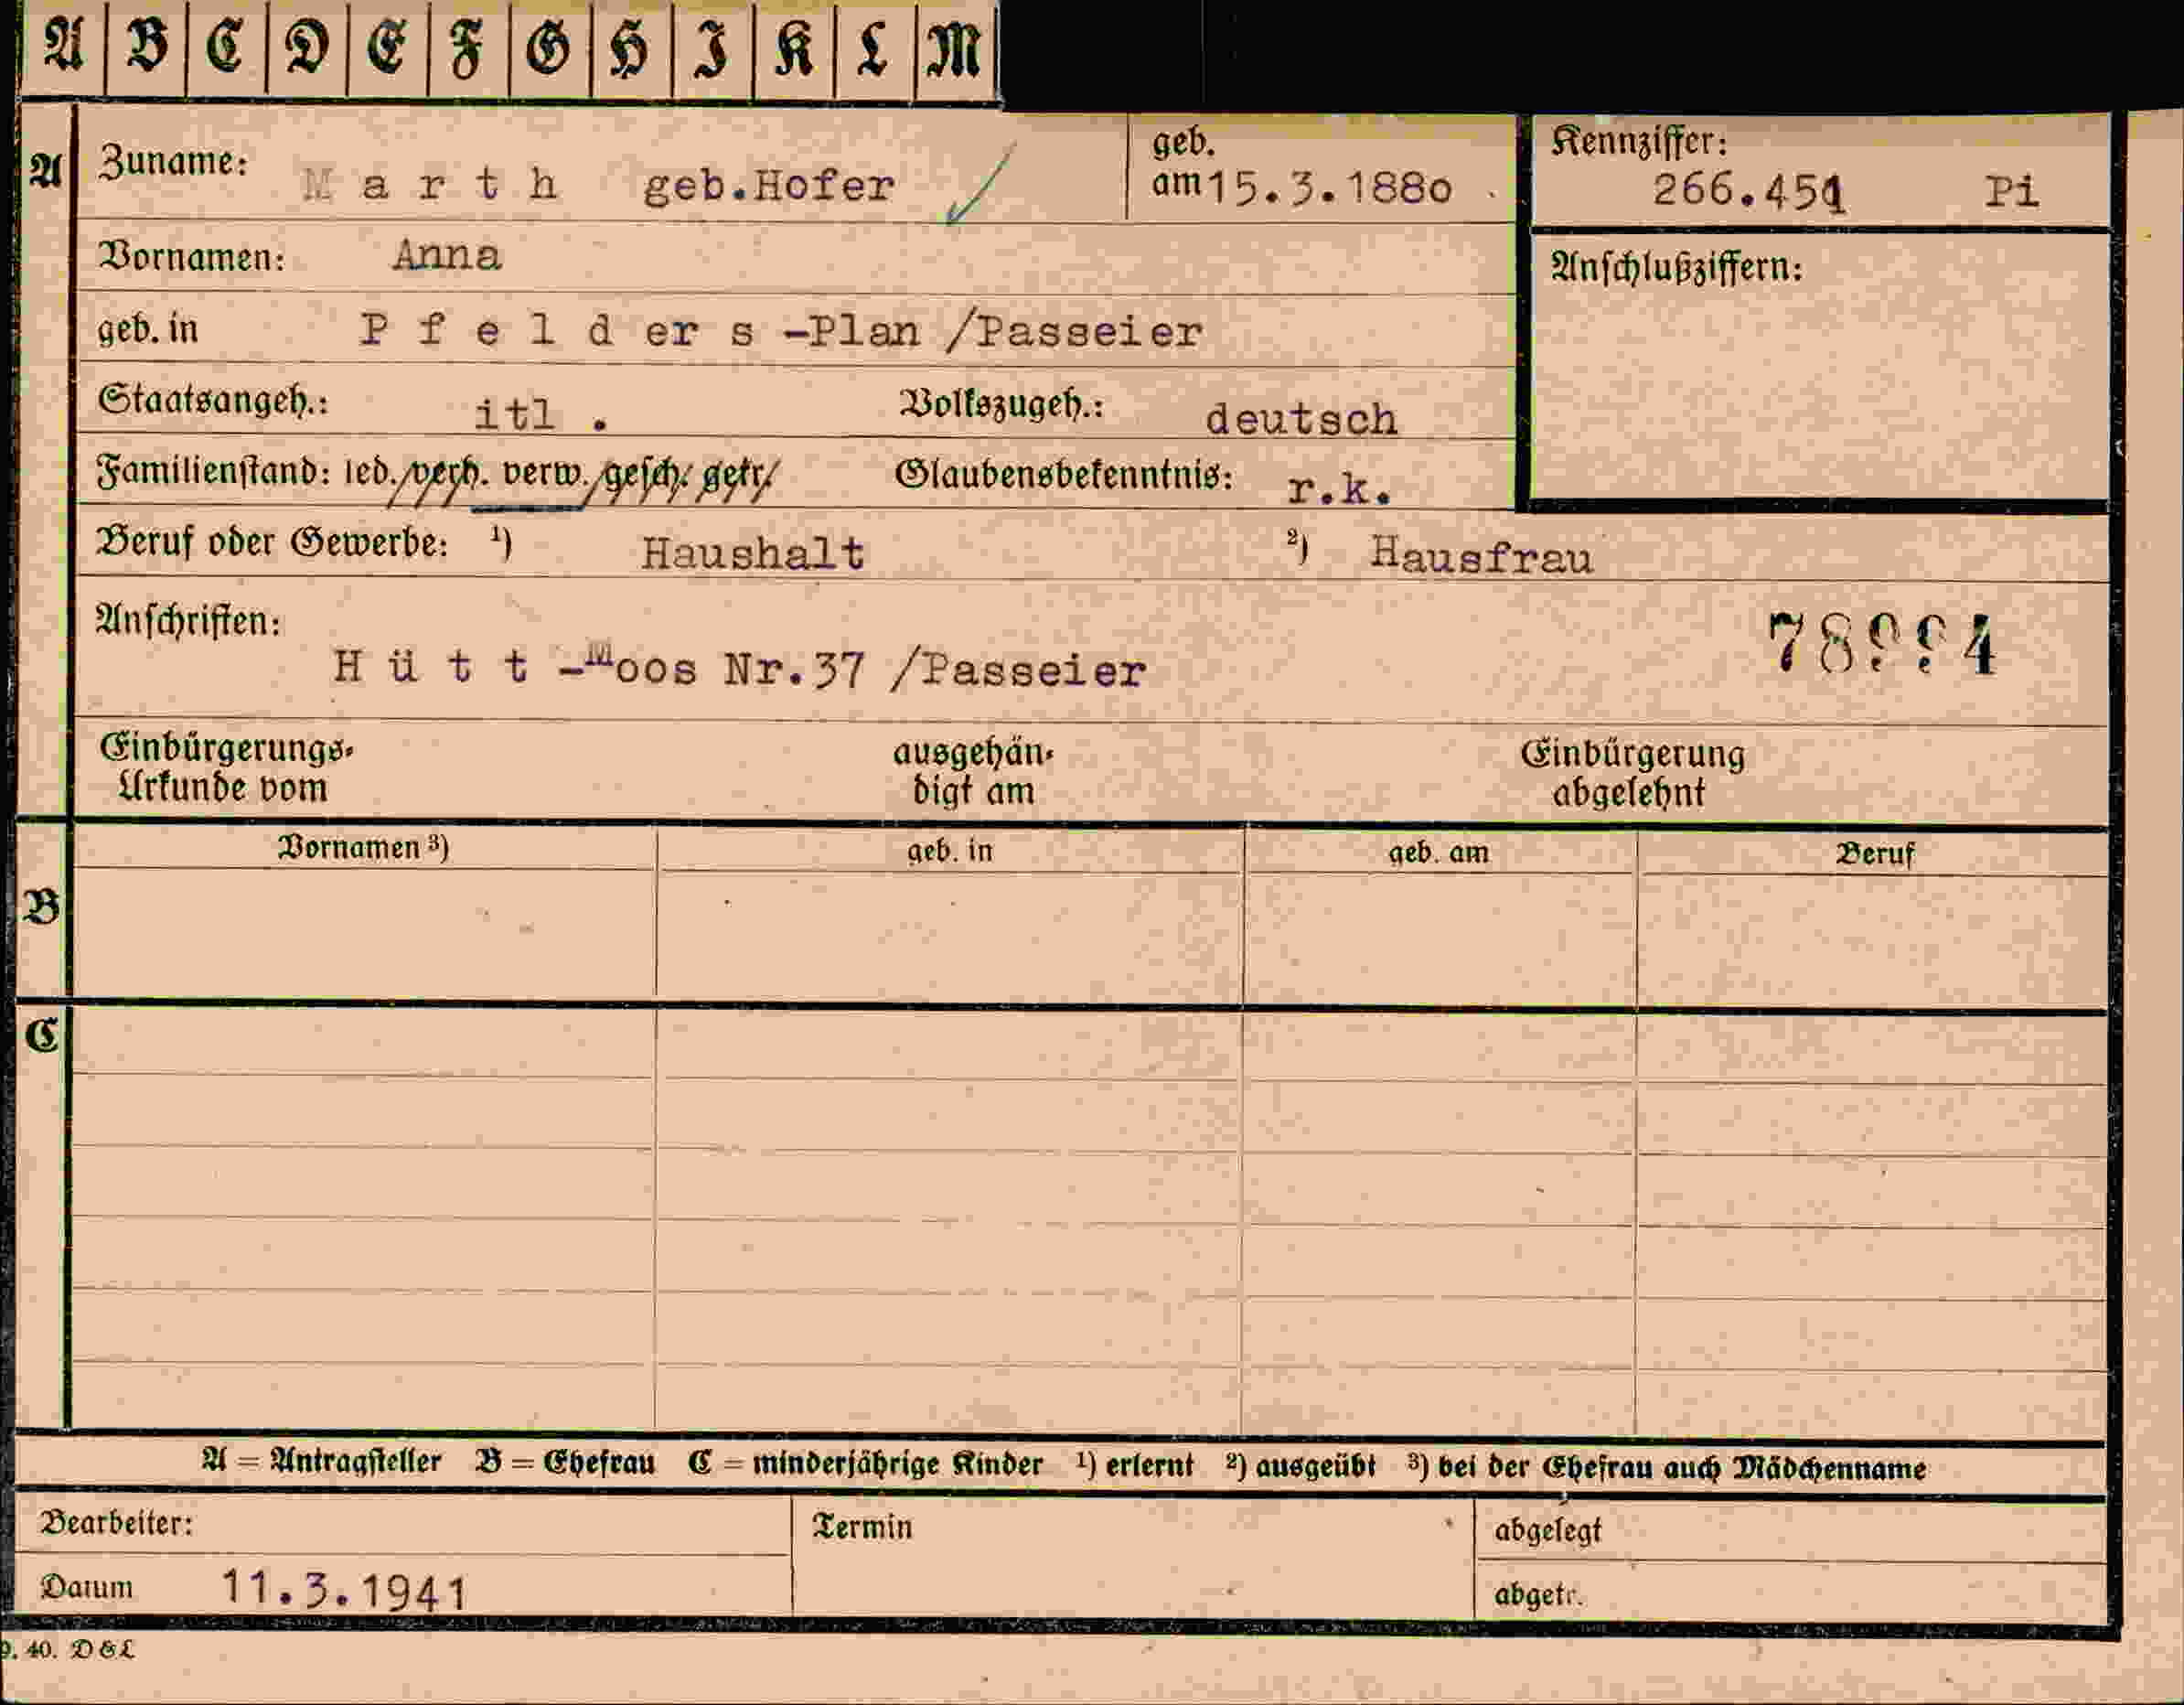 A B C D E F G H I K L M
A Zuname: Marth geb.Hofer geb. am 15.3.1880 Kennziffer: 266.451 Pi
Vornamen: Anna Anschlußziffern:
geb. in Pfelders-Plan /Passeier
Staatsangeh.: itl. Volkszugeh.: deutsch
Familienstand: led./verh. verw./gesch. getr/ Glaubensbekenntnis: r.k.
Beruf oder Gewerbe: ¹) Haushalt ²) Hausfrau
Anschriften:
Hütt-Moos Nr.37 /Passeier
Einbürgerungs-Urkunde vom ausgehän-digt am Einbürgerung abgelehnt
B Vornamen ³) geb. in geb. am Beruf
C
A = Antragsteller B = Ehefrau C = minderjährige Kinder ¹) erlernt ²) ausgeübt ³) bei der Ehefrau auch Mädchenname
Bearbeiter: Termin abgelegt
Datum 11.3.1941 abgetr.
9. 40. D & L